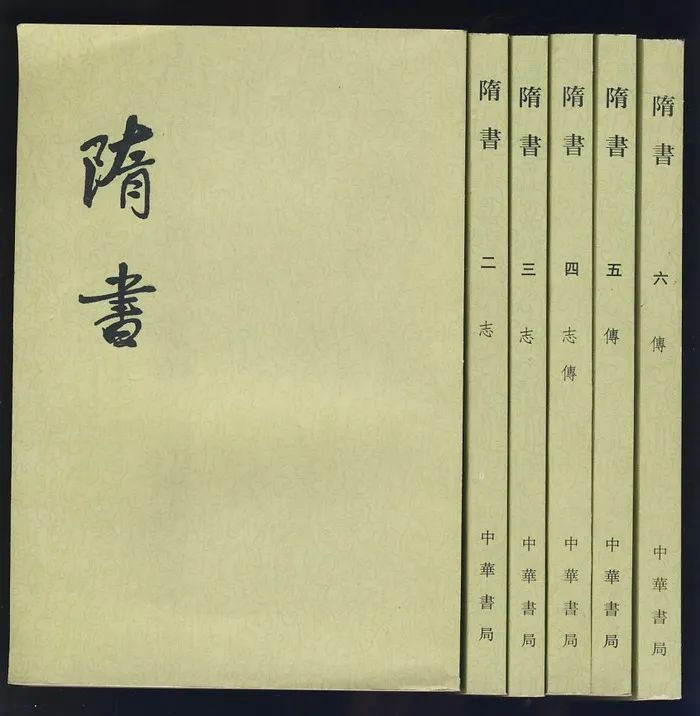 隋書
隋書 二 志 中華書局
隋書 三 志 中華書局
隋書 四 志傳 中華書局
隋書 五 傳 中華書局
隋書 六 傳 中華書局